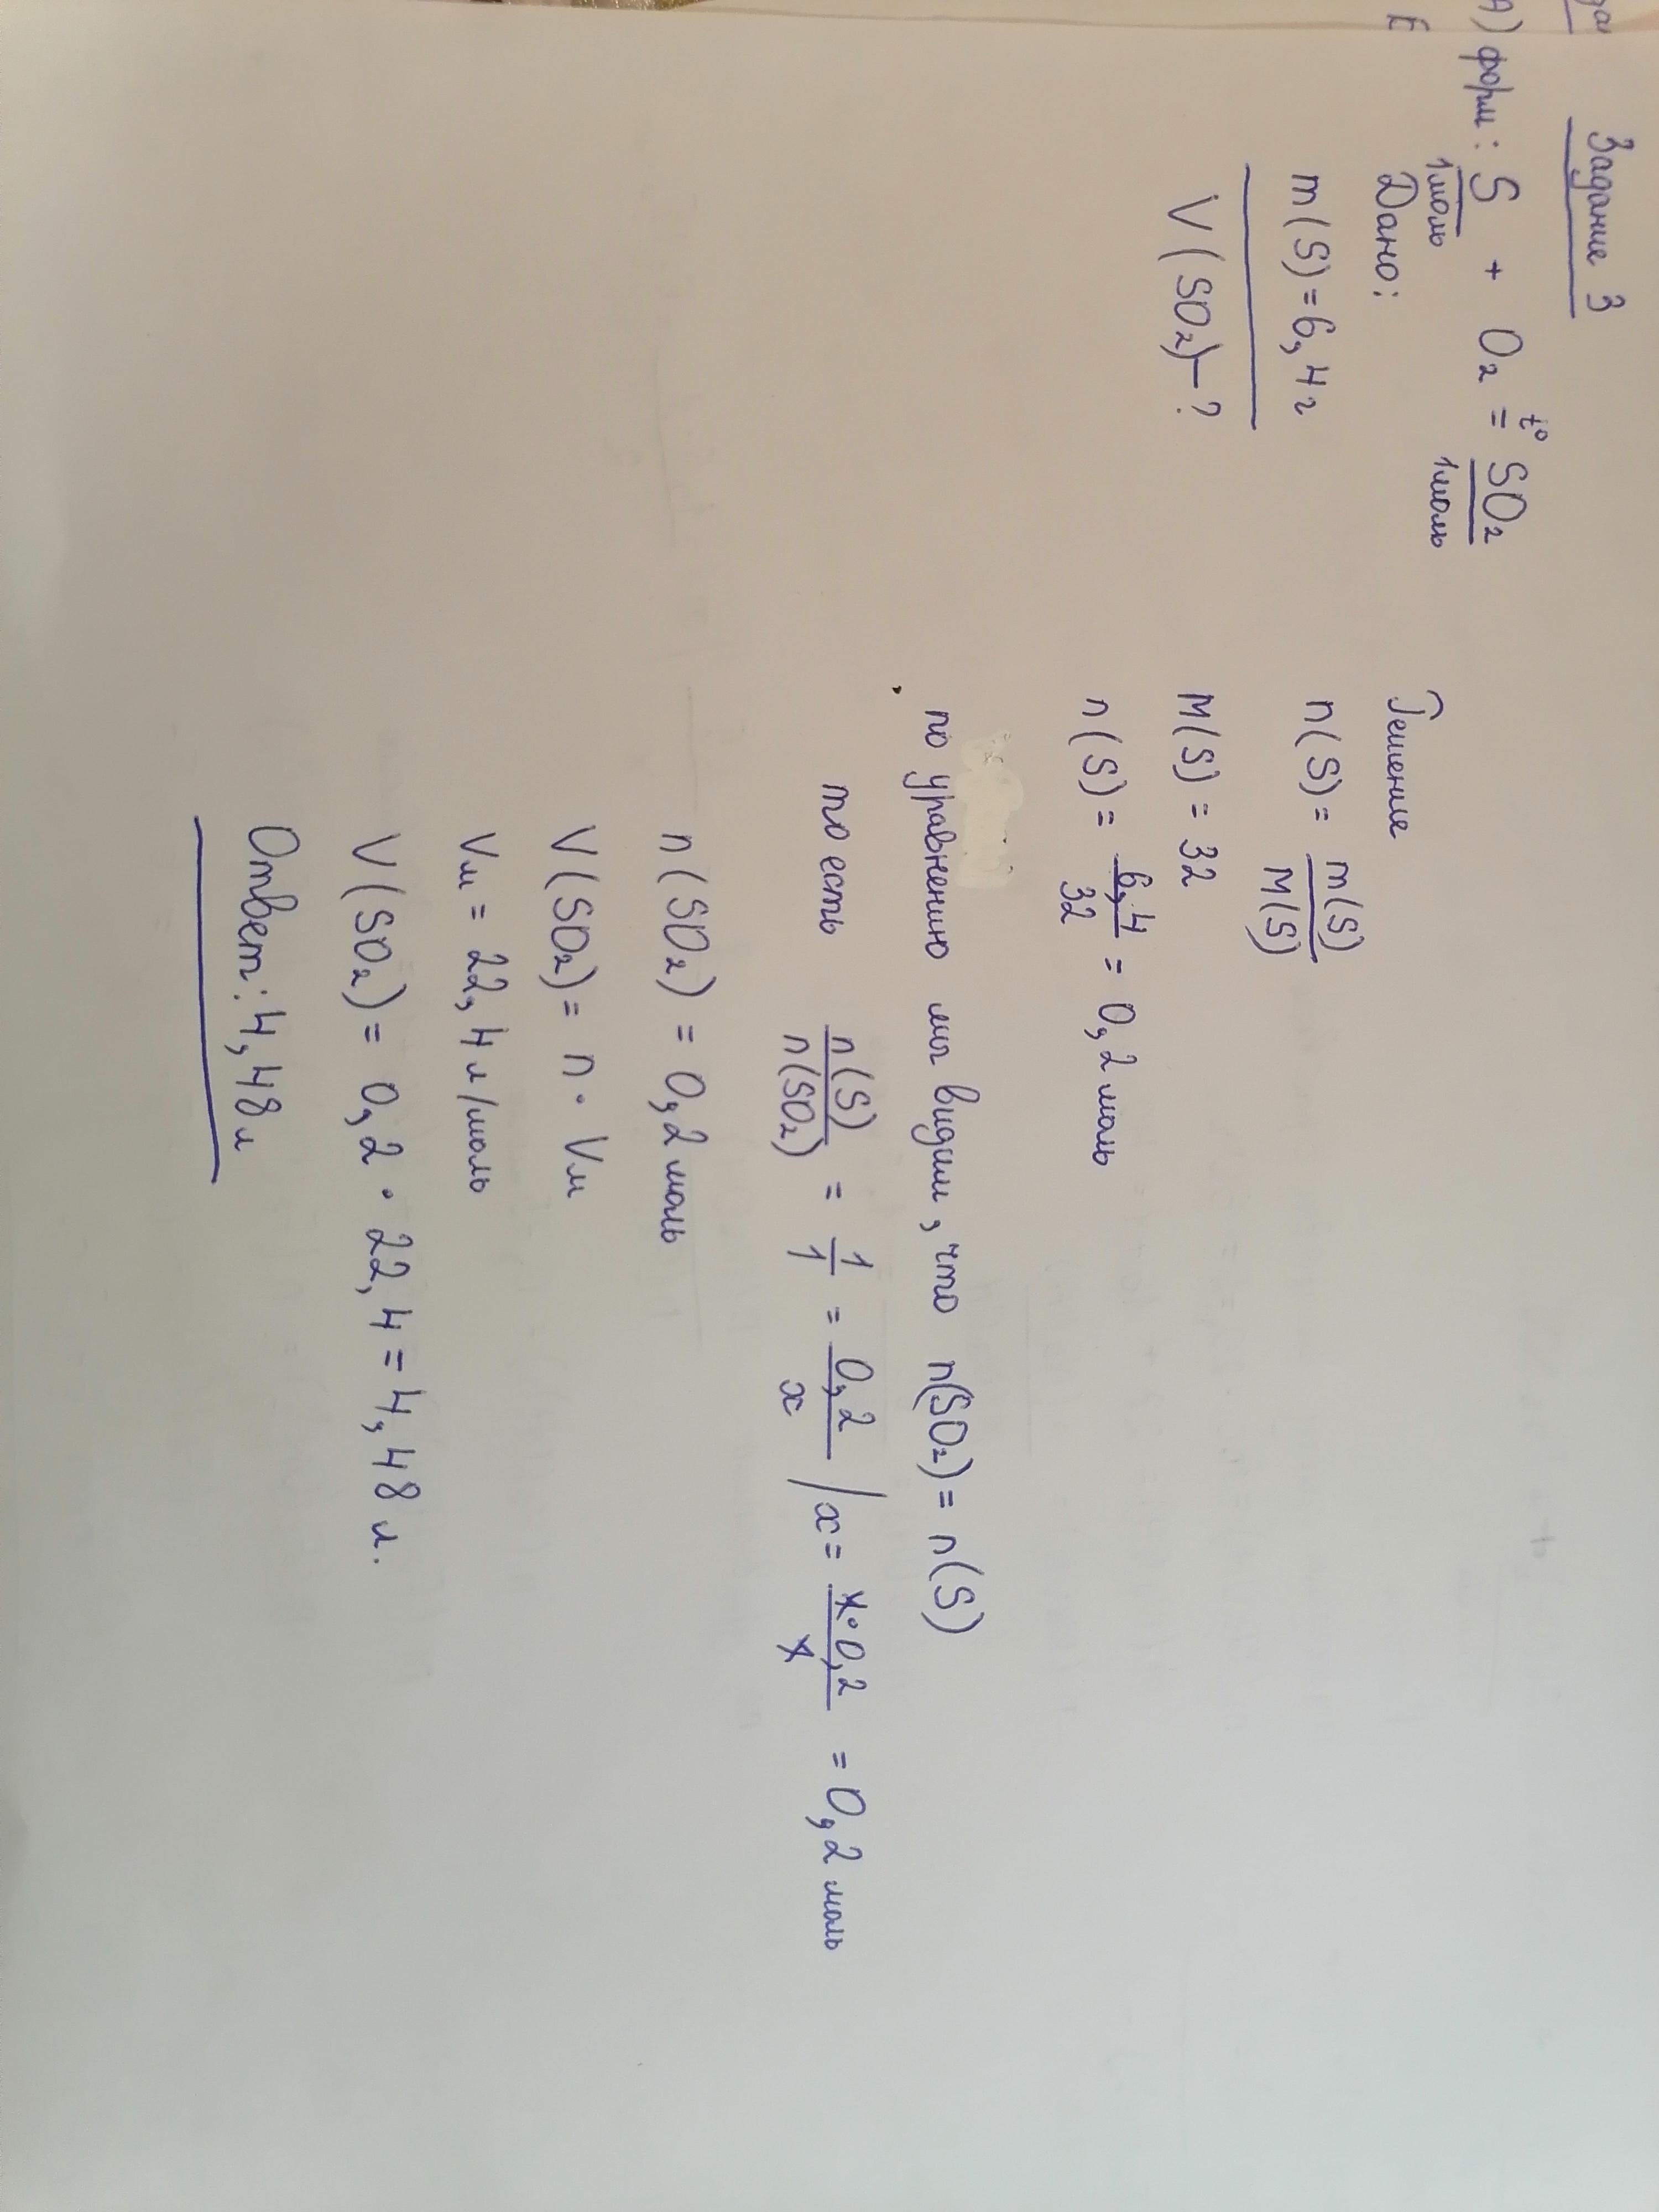 Задание 3
форм: S + O₂ =t° SO₂
1моль 1моль
Дано:
m(S)=6,4г
V(SO₂)-?
Решение
n(S)= m(S)/M(S)
M(S)=32
n(S)= 6,4/32 = 0,2моль
по уравнению мы видим, что n(SO₂)= n(S)
то есть n(S)/n(SO₂) = 1/1 = 0,2/x / x= 1·0,2/1 = 0,2 моль
n(SO₂)= 0,2 моль
V(SO₂)= n · Vм
Vм = 22,4 л/моль
V(SO₂)= 0,2 · 22,4 = 4,48 л.
Ответ: 4,48 л